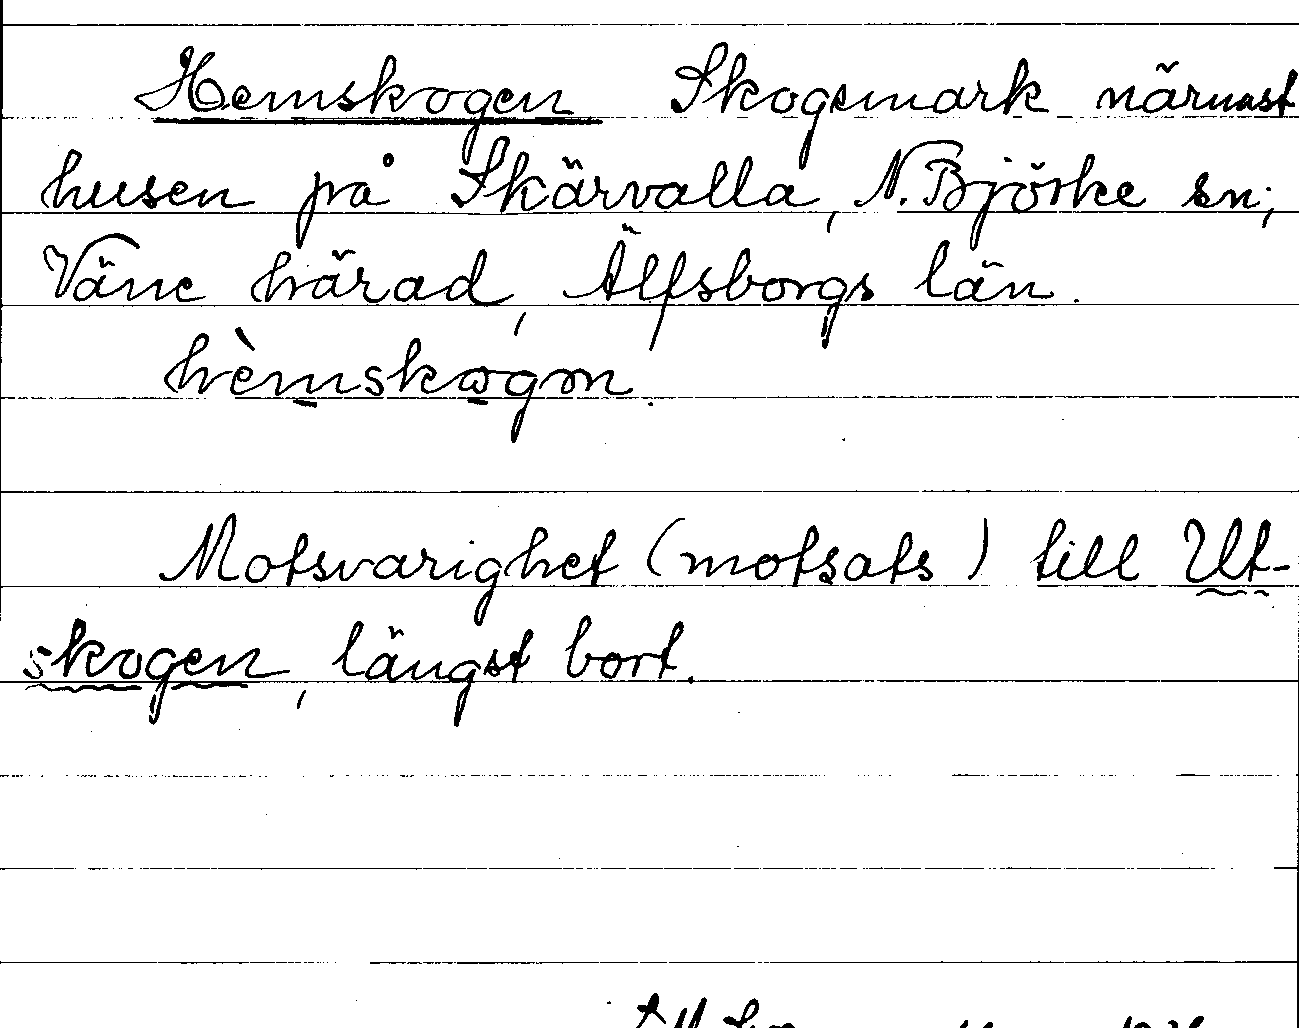 Hemskogen Skogsmark närmast
husen på Skärvalla, N. Björke sn;
Väne härad, Älfsborgs län.
hèmskogɷn.
Motsvarighet (motsats) till Ut-
skogen, längst bort.